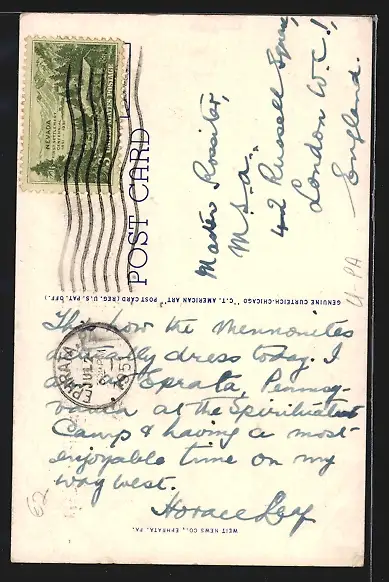 NEVADA
FIRST SETTLEMENT
CENTENNIAL
1851 1951
3¢ UNITED STATES POSTAGE
POST CARD
Master Rossiter,
M.S.A.
42 Russell Square,
London W.C.1,
England.
U-PA
GENUINE CURTEICH-CHICAGO "C.T. AMERICAN ART" POST CARD (REG. U.S. PAT. OFF.)
EPHRATA, PA.
JUL 2
1951
This how the Mennonites
actually dress today. I
am Eprata, Pennsy-
vania at the Spiritualist
Camp & having a most
enjoyable time on my
way west.
Horace Leaf
62
WEIT NEWS CO., EPHRATA, PA.